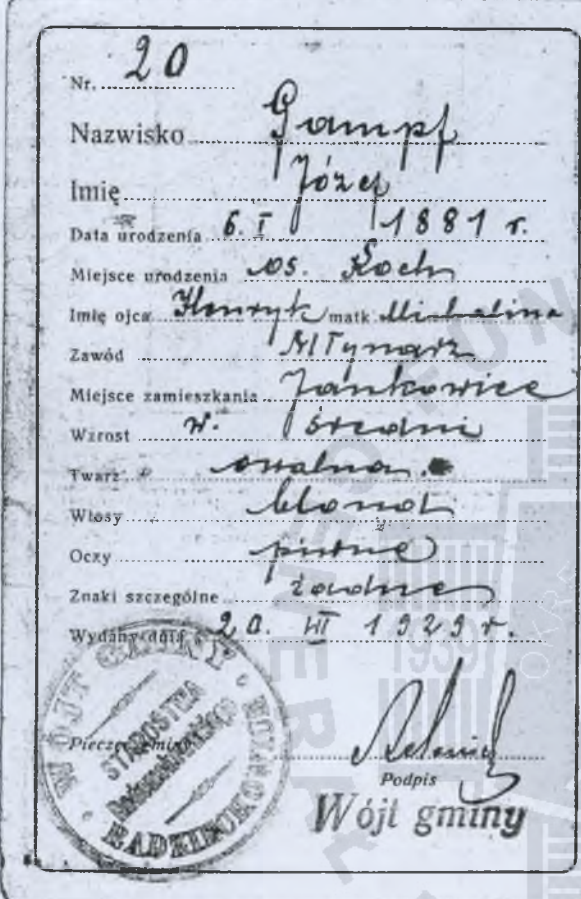 Nr. 20
Nazwisko Gampf
Imię Józef
Data urodzenia 6. I 1881 r.
Miejsce urodzenia os. Koch
Imię ojca Henryk matk Michalina
Zawód Młynarz
Miejsce zamieszkania Jankowice
Wzrost w. średni
Twarz owalna
Włosy blond
Oczy piwne
Znaki szczególne żadne
Wydany dnia 20. III 1929 r.
Pieczęć gminy
WÓJT GMINY
STAROSTWA
Podpis
Wójt gminy
1939